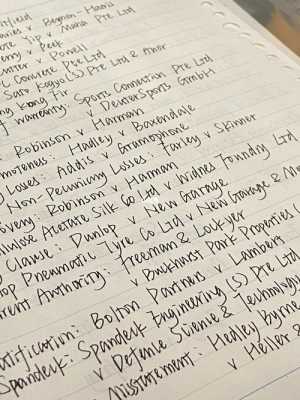 tfield
v Beyman-Haniz
Tip v Maha Pte Ltd
v Peek
v Powell
Concrete Pte Ltd
Sato Kogyo (S) Pte Ltd & Anor
Kong Fir
Warranty: Sports Connection Pte Ltd
v Deuter Sports GmbH
Robinson v Harman
moteness: Hadley v Baxendale
Loses: Addis v Gramophone
Non-Pecuniary Losses: Farley v Skinner
Robinson v Harman
Acetate Silk Co Ltd v Widnes Foundry Ltd
Clause: Dunlop v New Garage
lop Pneumatic Tyre Co Ltd v New Garage & Mo
rent Authority: Freeman & Lockyer
v Buckhurst Park Properties
atification: Bolton Partners v Lambert
Spandeck: Spandeck Engineering (S) Pte Ltd
v Defence Science & Technology
Misstatement: Hedley Byrne
v Heller &